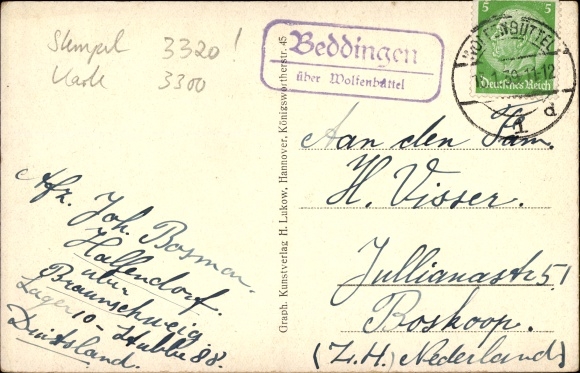 Stempel 3320!
Karte 3300
Beddingen
über Wolfenbüttel
5 5
Deutsches Reich
WOLFENBÜTTEL
d
Graph. Kunstverlag H. Lukow, Hannover, Königswortherstr. 45
Aan den Fam.
H. Visser.
Jullianastr 51
Boskoop.
(Z.H.) Nederland)
Afz. Joh. Bosman.
Hallendorf.
über
Braunschweig.
Lager 10 - Stubbe 88.
Duitsland.